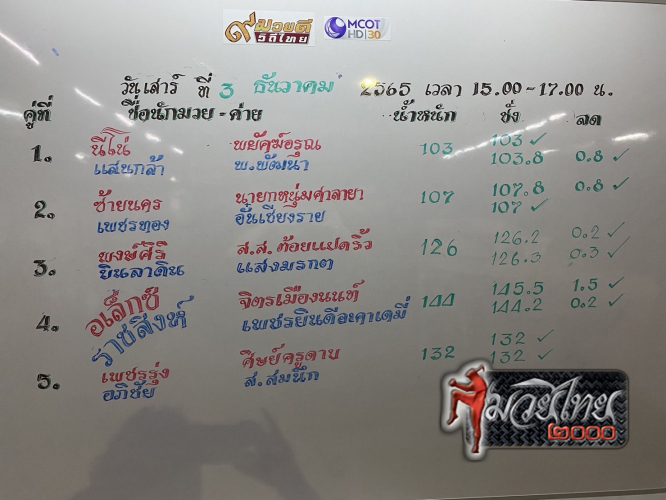 ๙ มวยดี
วิถีไทย
MCOT
HD 30
วันเสาร์ ที่ 3 ธันวาคม 2565 เวลา 15.00-17.00 น.
คู่ที่ ชื่อนักมวย - ค่าย น้ำหนัก ชั่ง ลด
1. นีโน่ พยัคฆ์อรุณ 103 103 ✓
แสนกล้า พ.พัฒนา 103.8 0.8 ✓
2. ซ้ายนคร นายกหนุ่มศาลายา 107 107.8 0.8 ✓
เพชรทอง อั๋นเชียงราย 107 ✓
3. พงษ์ศิริ ส.ส.ต้อยแปดริ้ว 126 126.2 0.2 ✓
บินลาดิน แสงมรกต 126.3 0.3 ✓
4. อเล็กซ์ จิตรเมืองนนท์ 144 145.5 1.5 ✓
ราชสิงห์ เพชรยินดีอะคาเดมี่ 144.2 0.2 ✓
5. เพชรรุ่ง ศิษย์ครูดาน 132 132 ✓
อภิชัย ส.สมนึก 132 ✓
มวยไทย
๒๐๐๐